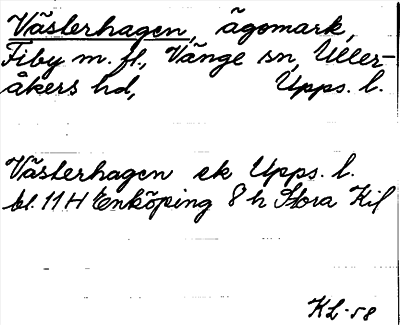 Västerhagen, ägomark,
Fiby m. fl., Vänge sn, Uller-
åkers hd, Upps. l.
Västerhagen ek Upps. l.
bl. 11 H Enköping 8 h Stora Kil
KL-58